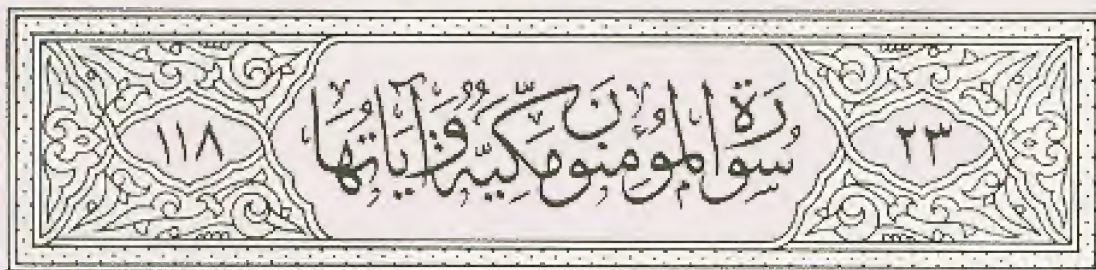 ٢٣ سُورَةُ المُؤمِنُونَ مَكِّيَّة وَآيَاتُهَا ١١٨